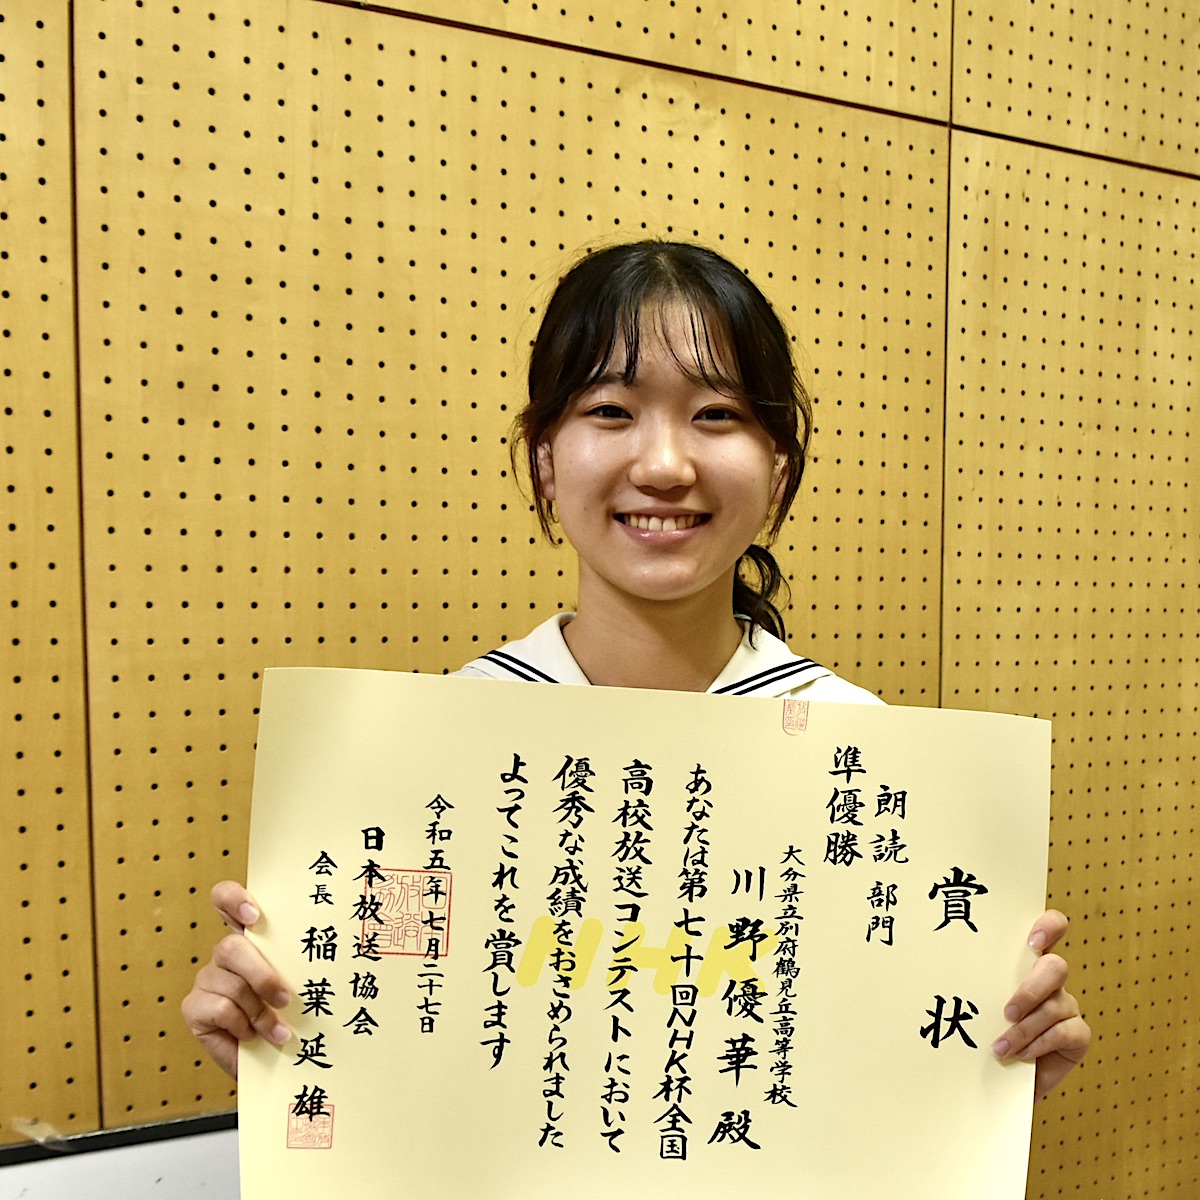 賞状
朗読 部門
準優勝
大分県立別府鶴見丘高等学校
川野優華殿
あなたは第七十回NHK杯全国
高校放送コンテストにおいて
優秀な成績をおさめられました
よってこれを賞します
令和五年七月二十七日
日本放送協会
会長 稲葉延雄
NHK